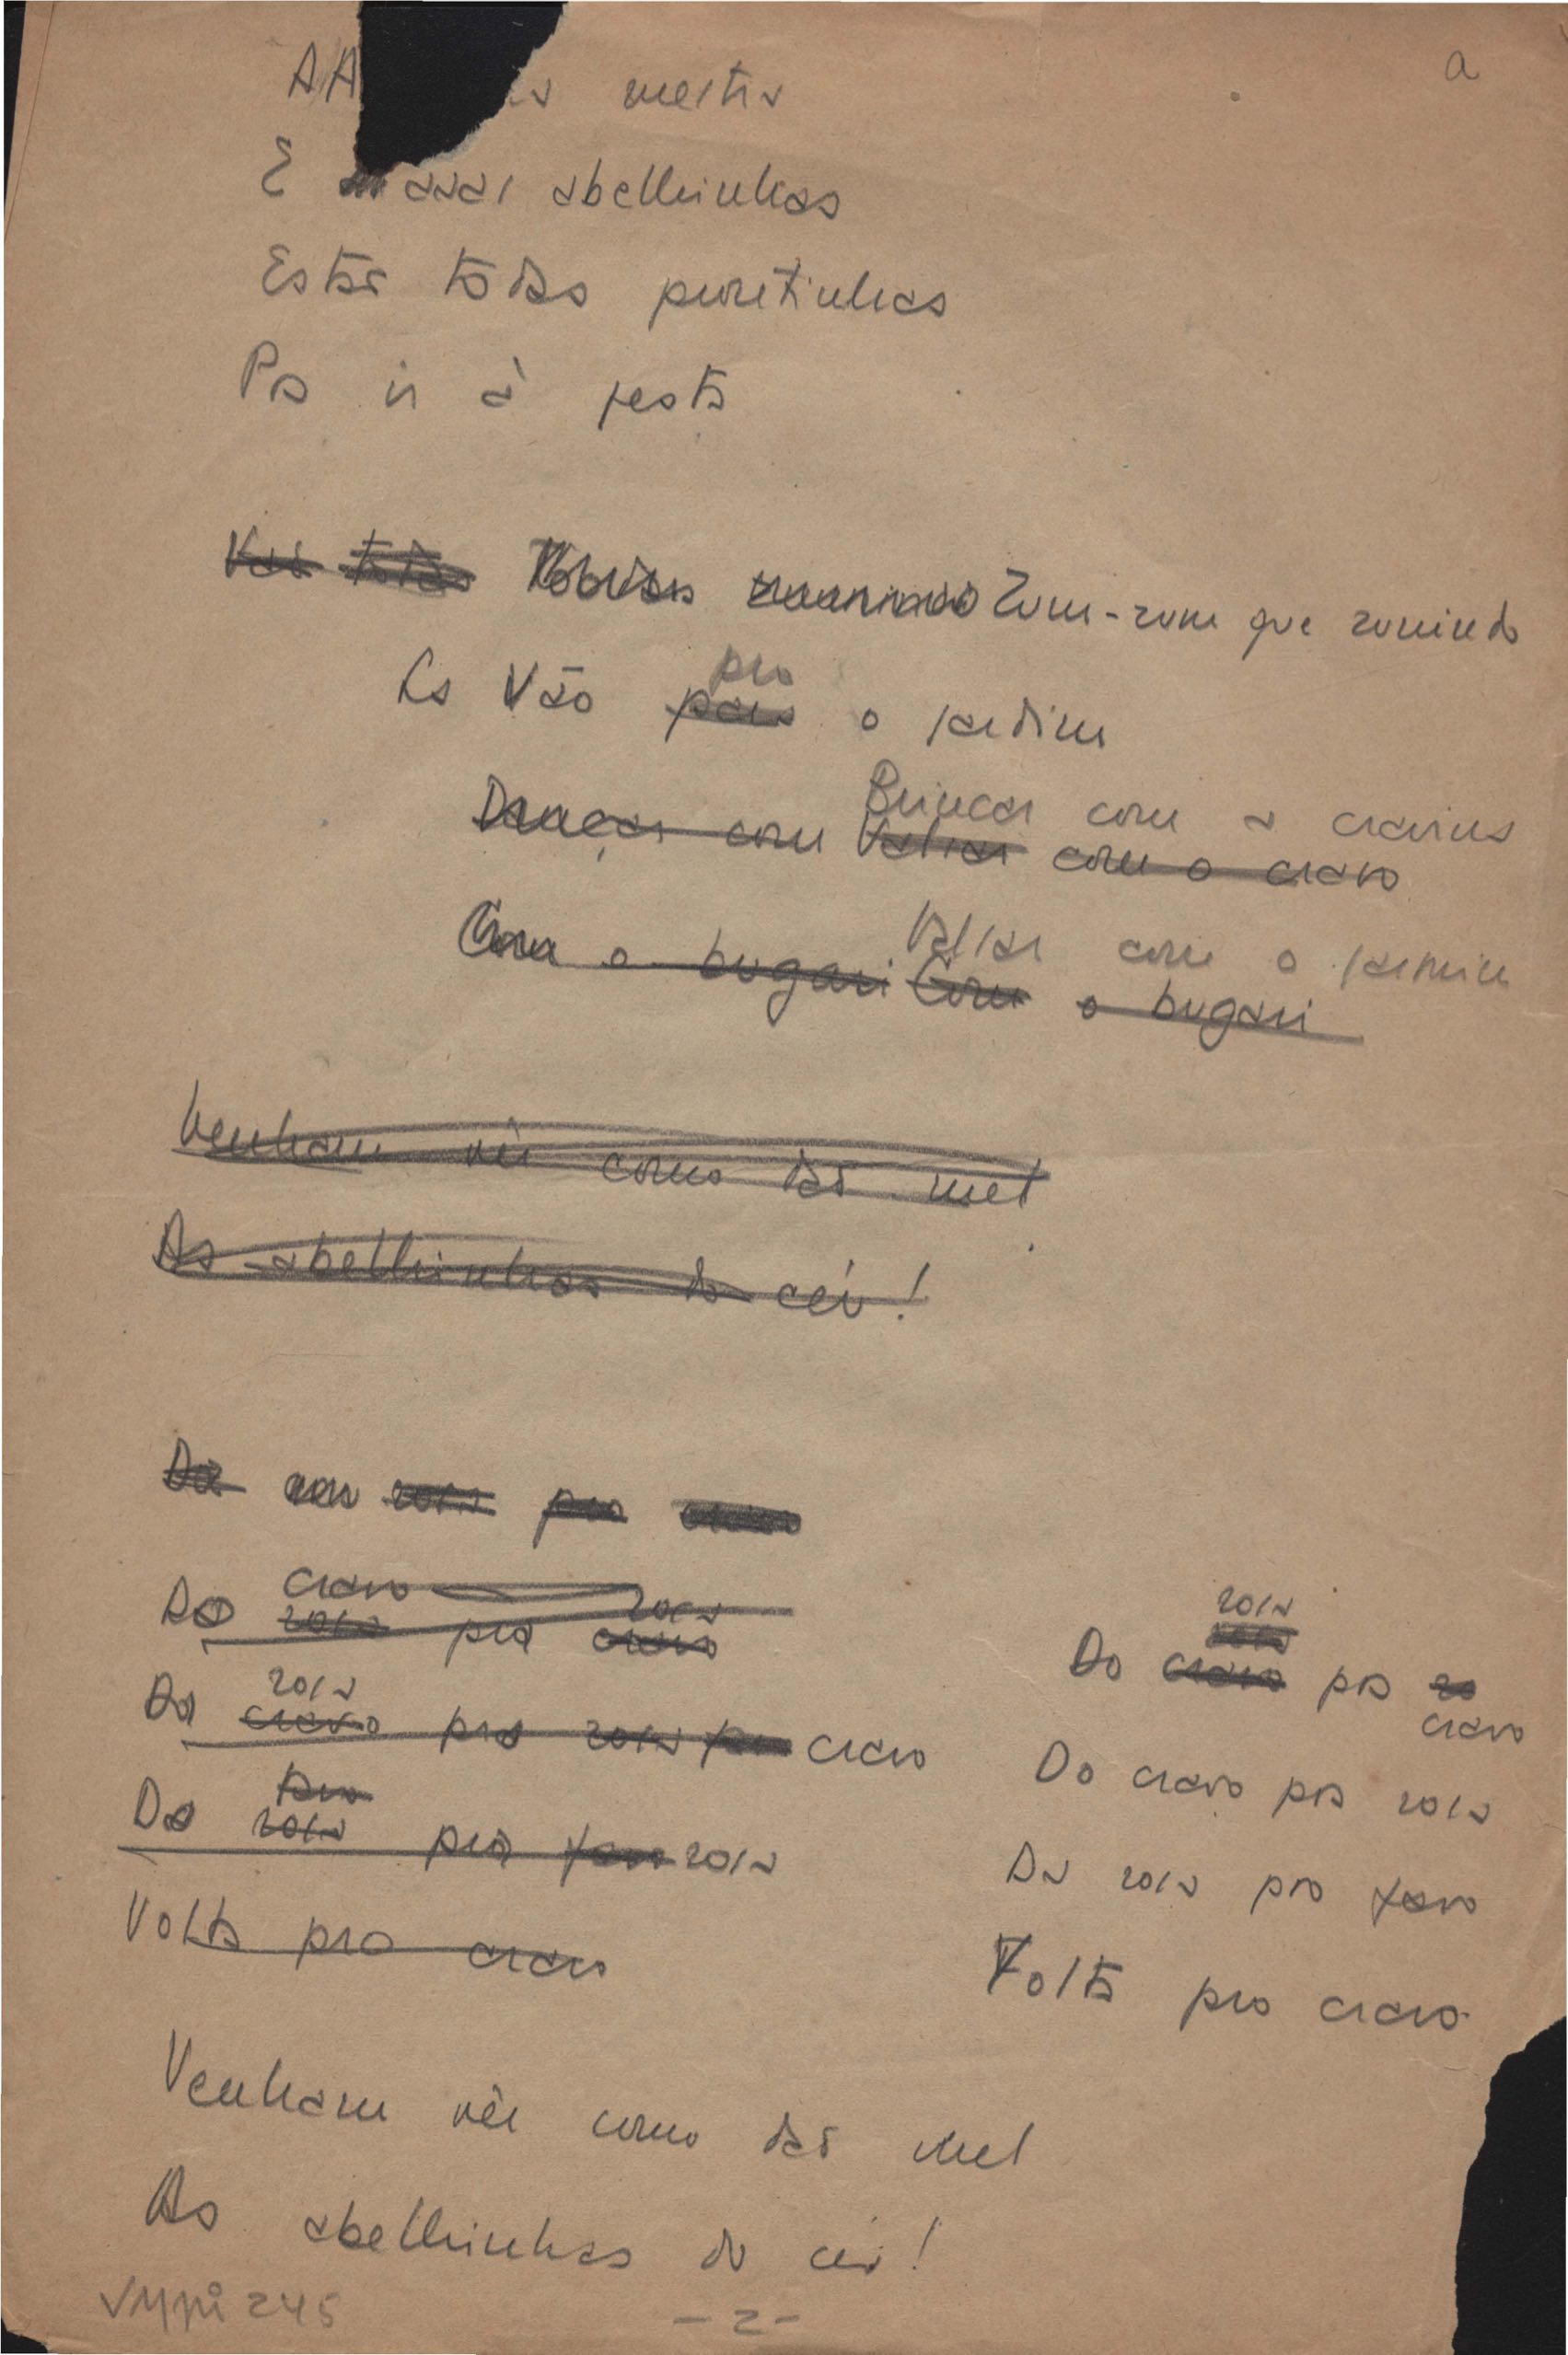 a
AA mestra
E abelhinhas
Estão tôdas prontinhas
Pra ir à festa
Vão tôdas Zum-zum que zunindo
Lá Vão para pro o jardim
Dançar com Valsar com o cravo Brincar com a cravina
Com o bugari Com o bugari Valsar com o jasmim
Venham vêr como dão mel
As abelhinhas do céu!
Da rosa pro
Do cravo rosa pro cravo rosa
Da rosa cravo pra rosa pro cravo
Do favo rosa pra favo rosa
Volta pro cravo
Da rosa cravo pra cravo
Do cravo pra rosa
Da rosa pro favo
Volta pro cravo
Venham vêr como dão mel
As abelhinhas do céu!
VMpi 245
- 2 -